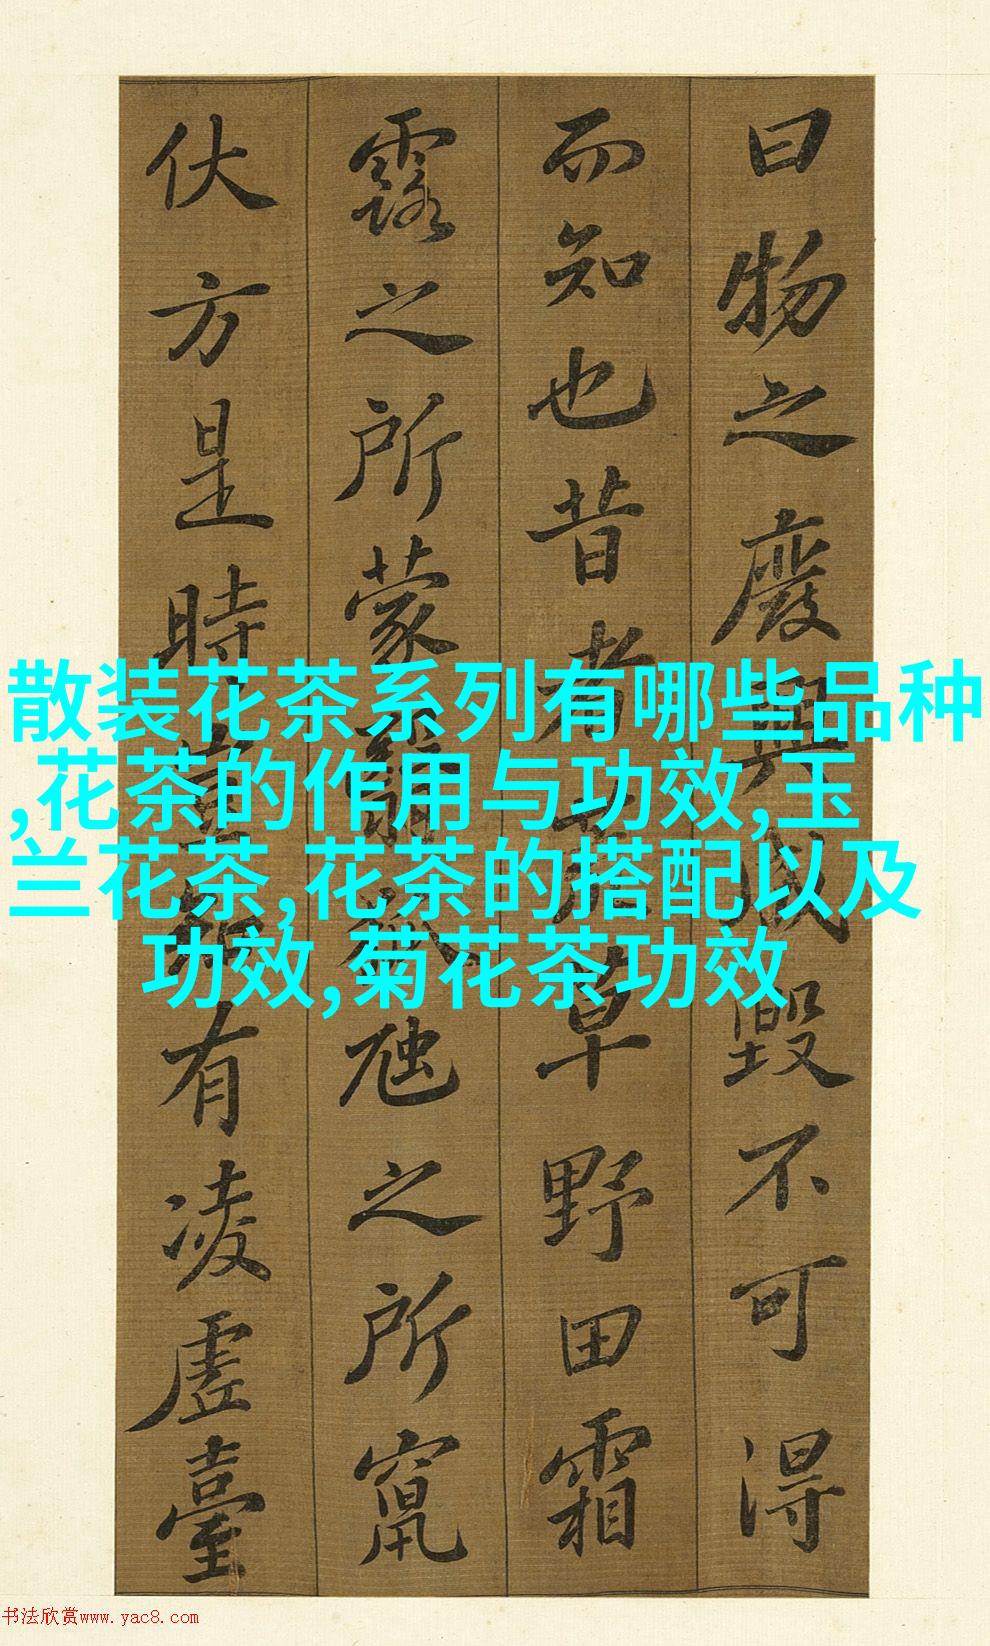 曰物之廢興成毀不可得
而知也昔者荒草野田霜
露之所蒙翳狐虺之所竄
伏方是時豈知有凌虛臺
散装花茶系列有哪些品种
,花茶的作用与功效,玉
兰花茶,花茶的搭配以及
功效,菊花茶功效
书法欣赏www.yac8.com